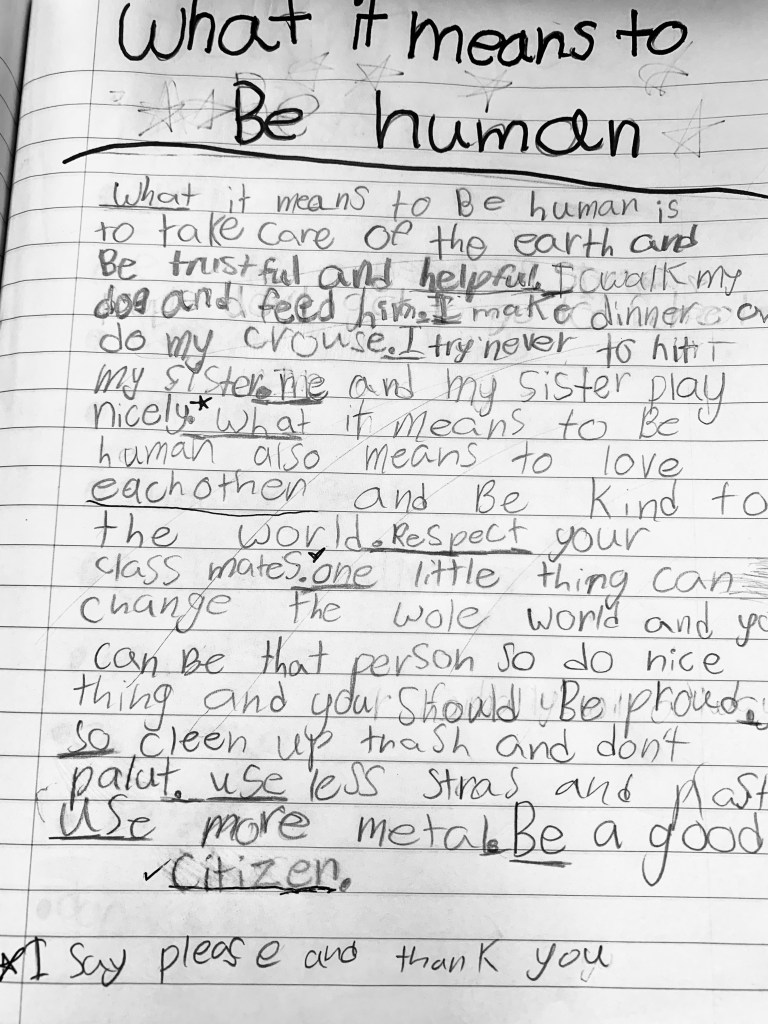 What it means to
Be human
What it means to Be human is
to take care of the earth and
Be trustful and helpful. I walk my
dog and feed him. I make dinner
do my crouse. I try never to hit
my sister. me and my sister play
nicely.* What it means to Be
human also means to love
eachother and Be kind to
the world. Respect your
class mates. one little thing can
change the wole world and yo
can Be that person so do nice
thing and your Should Be proud.
so cleen up trash and don't
palut. use less stras and plast
use more metal. Be a good
✓ Citizen.
*I Say please and thank you